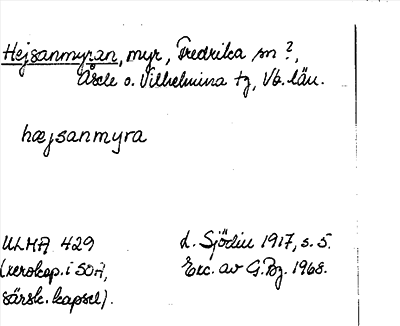 Hejsanmyran, myr, Fredrika sn ?,
Åsele o. Vilhelmina tg, Vb. län.
hæjsanmyra
ULMA 429 L. Sjödin 1917, s. 5.
(xerokop. i SOA, Exc. av G. Pg. 1968.
särsk. kapsel).